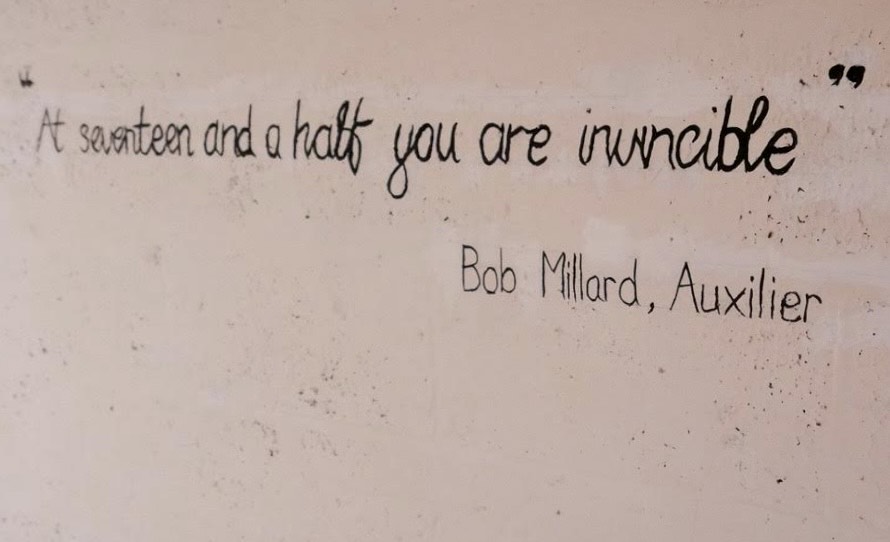 "At seventeen and a half you are invincible"
Bob Millard, Auxilier